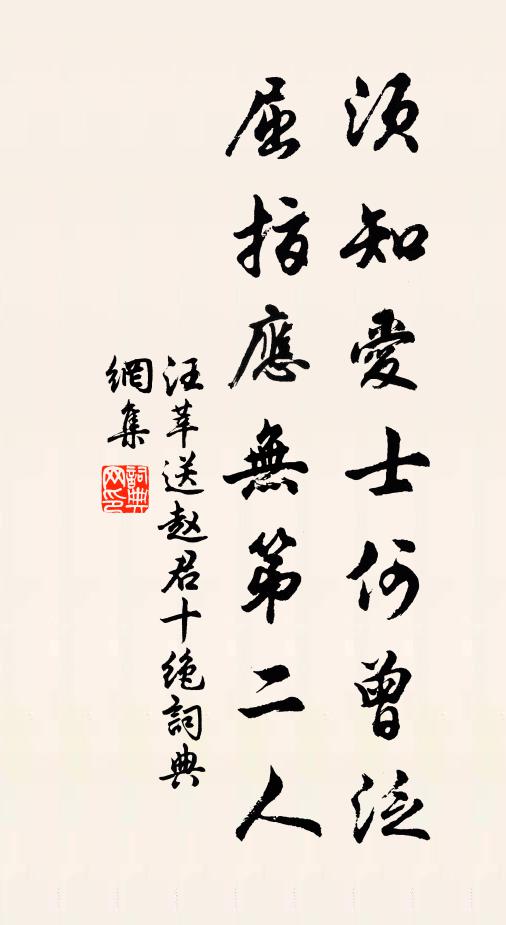 須知愛士何曾泛
屈指應無第二人
汪莘送趙君十絶詞典
網集
詞典
网印